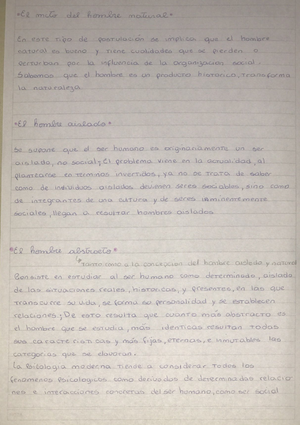 "El mito del hombre natural"
En este tipo de postulación se implica que el hombre
natural es bueno y tiene cualidades que se pierden o
perturban por la influencia de la organización social.
Sabemos que el hombre es un producto histórico, transforma
la naturaleza.
"El hombre aislado"
Se supone que el ser humano es originariamente un ser
aislado, no social; El problema viene en la actualidad, al
plantearse en términos invertidos, ya no se trata de saber
como de individuos aislados devienen seres sociables, sino como
de integrantes de una cultura y de seres eminentemente
sociales, llegan a resultar hombres aislados
"El hombre abstracto"
la concepción del hombre aislado y natural
Consiste en estudiar al ser humano como determinado, aislado
de las situaciones reales, históricas, y presentes, en las que
transcurre su vida, se forma su personalidad y se establecen
relaciones; De esto resulta que cuanto más abstracto es
el hombre que se estudia, más idénticas resultan todas
sus características y más fijas, eternas, e inmutables las
categorías que se elaboran.
La Psicología moderna tiende a considerar todos los
fenómenos psicológicos como derivados de determinadas relacio-
nes e interacciones concretas del ser humano, como ser social